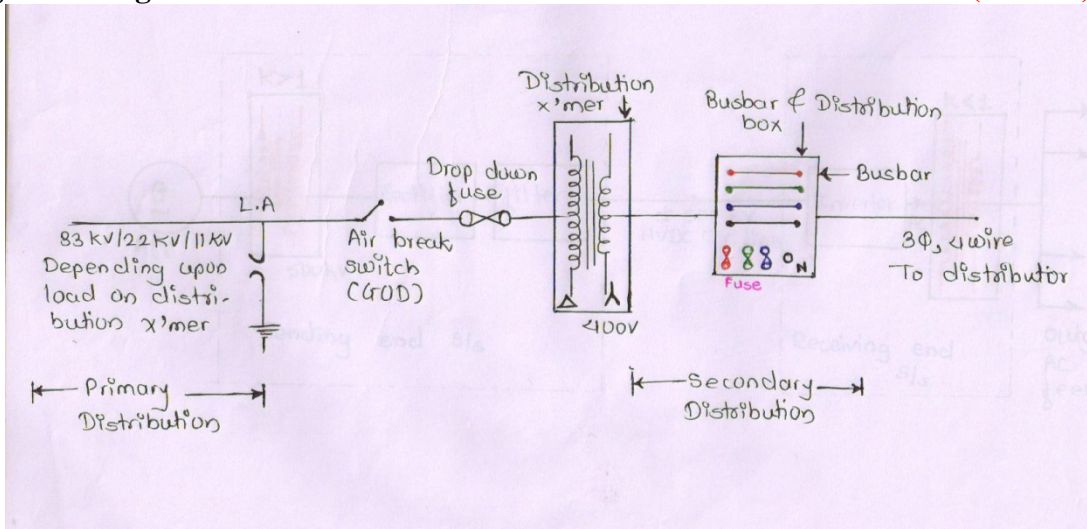 L.A
83 KV/22 KV/11 KV
Depending upon
load on distri-
bution x'mer
Air break
switch
(GOD)
Drop down
fuse
Distribution
x'mer
400V
Busbar & Distribution
box
Busbar
N
Fuse
3Φ, 4 wire
To distributor
Primary
Distribution
Secondary
Distribution
Receiving end
s/s